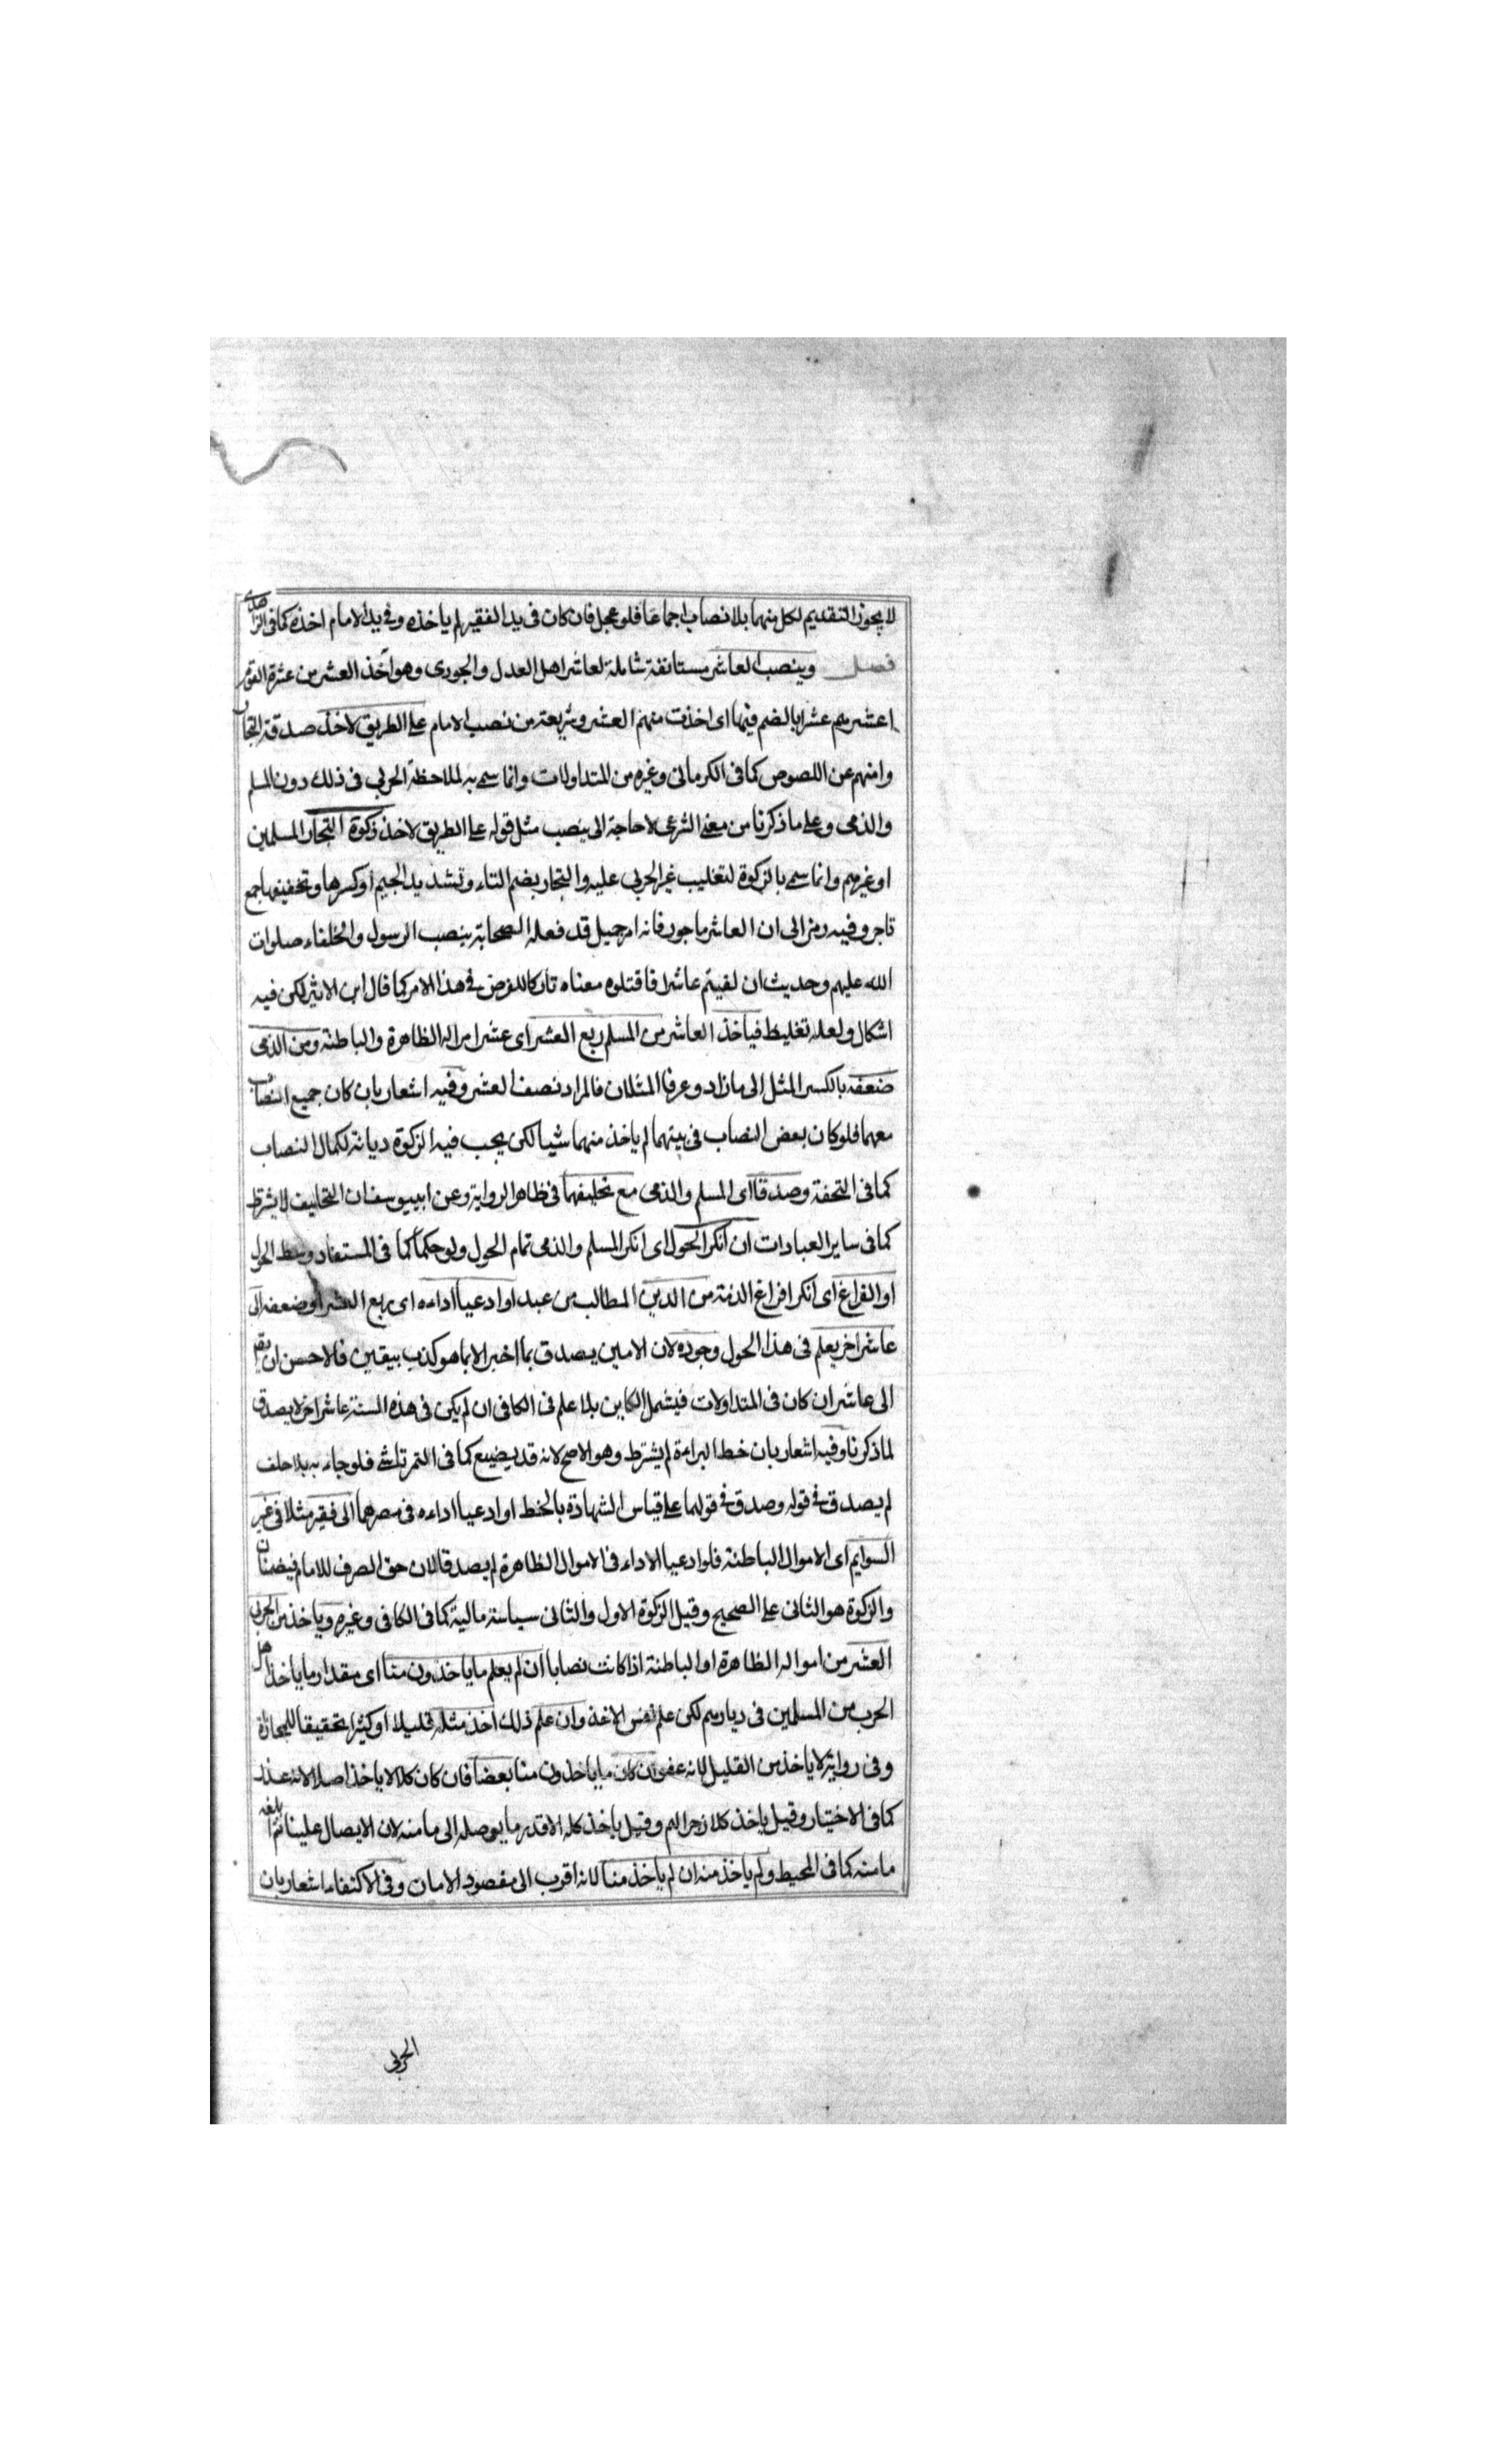 لا يجوز التقديم لكل منهما بلا نصاب اجماعا فلو عجل فان كان فى يد الفقير لم ياخذه وفى يد الامام اخذه كما فى الزاهدى
فصل وينصب العاشر مستانفة شاملة لعاشر اهل العدل والجورى وهو آخذ العشر من عشرة القوم
اعشرهم عشرا بالضم فيهما اى اخذت منهم العشر وشريعة من نصب الامام على الطريق لاخذ صدقة التجار
وامنهم عن اللصوص كما فى الكرمانى وغيره من المتداولات وانما سمى به لملاحظة الحربى فى ذلك دون المسلم
والذمى وعلى ما ذكرنا من معنى الشرعى لا حاجة الى ينصب مثل قوله على الطريق لاخذ زكوة التجار المسلمين
او غيرهم وانما سمى بالزكوة لتغليب غير الحربى عليه والتجار بضم التاء وتشديد الجيم او كسرها وتخفيفها جمع
تاجر وفيه رمز الى ان العاشر ماجور فانه امر جميل قد فعله الصحابة بنصب الرسول والخلفاء صلوات
الله عليهم وحديث ان لقيتم عاشرا فاقتلوه معناه تاركا للفرض فى هذا الامر كما قال ابن الاثير لكن فيه
اشكال ولعله تغليظ فياخذ العاشر من المسلم ربع العشر اى عشر امواله الظاهرة والباطنة ومن الذمى
ضعفه بالكسر المثل الى ما زاد وعرفا المثلان فالمراد نصف العشر وفيه اشعار بان كان جميع النصاب
معهما فلو كان بعض النصاب فى بيتهما لم ياخذ منهما شيا لكن يجب فيه الزكوة ديانة لكمال النصاب
كما فى التحفة وصدقا اى المسلم والذمى مع تحليفهما فى ظاهر الرواية وعن ابييوسف ان التحليف لا يشترط
كما فى ساير العبادات ان انكر الحول اى انكر المسلم والذمى تمام الحول ولو حكما كما فى المستفاد وسط الحول
او الفراغ اى انكر افراغ الذمة من الدين المطالب من عبد او ادعيا اداءه اى ربع العشر او ضعفه الى
عاشر اخر يعلم فى هذا الحول وجوده لان الامين يصدق بما اخبر الا بما هو كذب بيقين فالاحسن ان يقل
الى عاشر ان كان فى المتداولات فيشمل الكاين بلا علم فى الكافى ان لم يكن فى هذه السنة عاشر اخر لا يصدق
لما ذكرنا وفيه اشعار بان خط البراءة لم يشترط وهو الاصح لانه قد يضيع كما فى التمرتاشى فلو جاء به بلا حلف
لم يصدق فى قوله وصدق فى قولهما على قياس الشهادة بالخط او ادعيا اداءه فى مصرهما الى فقير مثلا فى غير
السوايم اى الاموال الباطنة فلو ادعيا الاداء فى الاموال الظاهرة لم يصدقا لان حق الصرف للامام فيضمنان
والزكوة هو الثانى على الصحيح وقيل الزكوة الاول والثانى سياسة مالية كما فى الكافى وغيره وياخذ من الحربى
العشر من امواله الظاهرة او الباطنة اذا كانت نصابا ان لم يعلم ما ياخذون منا اى مقدار ما ياخذ اهل
الحرب من المسلمين فى ديارهم لكن علم نفس الاخذ وان علم ذلك اخذ مثله قليلا او كثيرا تحقيقا للمجازاة
وفى رواية لا ياخذ من القليل لانه عفو ان كان ما ياخذون منا بعضا فان كان كلا لا ياخذ اصلا لانه غدر
كما فى الاختيار وقيل ياخذ كلا زجرا لهم وقيل ياخذ كله الا قدر ما يوصله الى مامنه لان الايصال علينا ثم ابلغه
مامنه كما فى المحيط ولم ياخذ منه ان لم ياخذ منا لانه اقرب الى مقصود الامان وفى الاكتفاء اشعار بان
الحربى